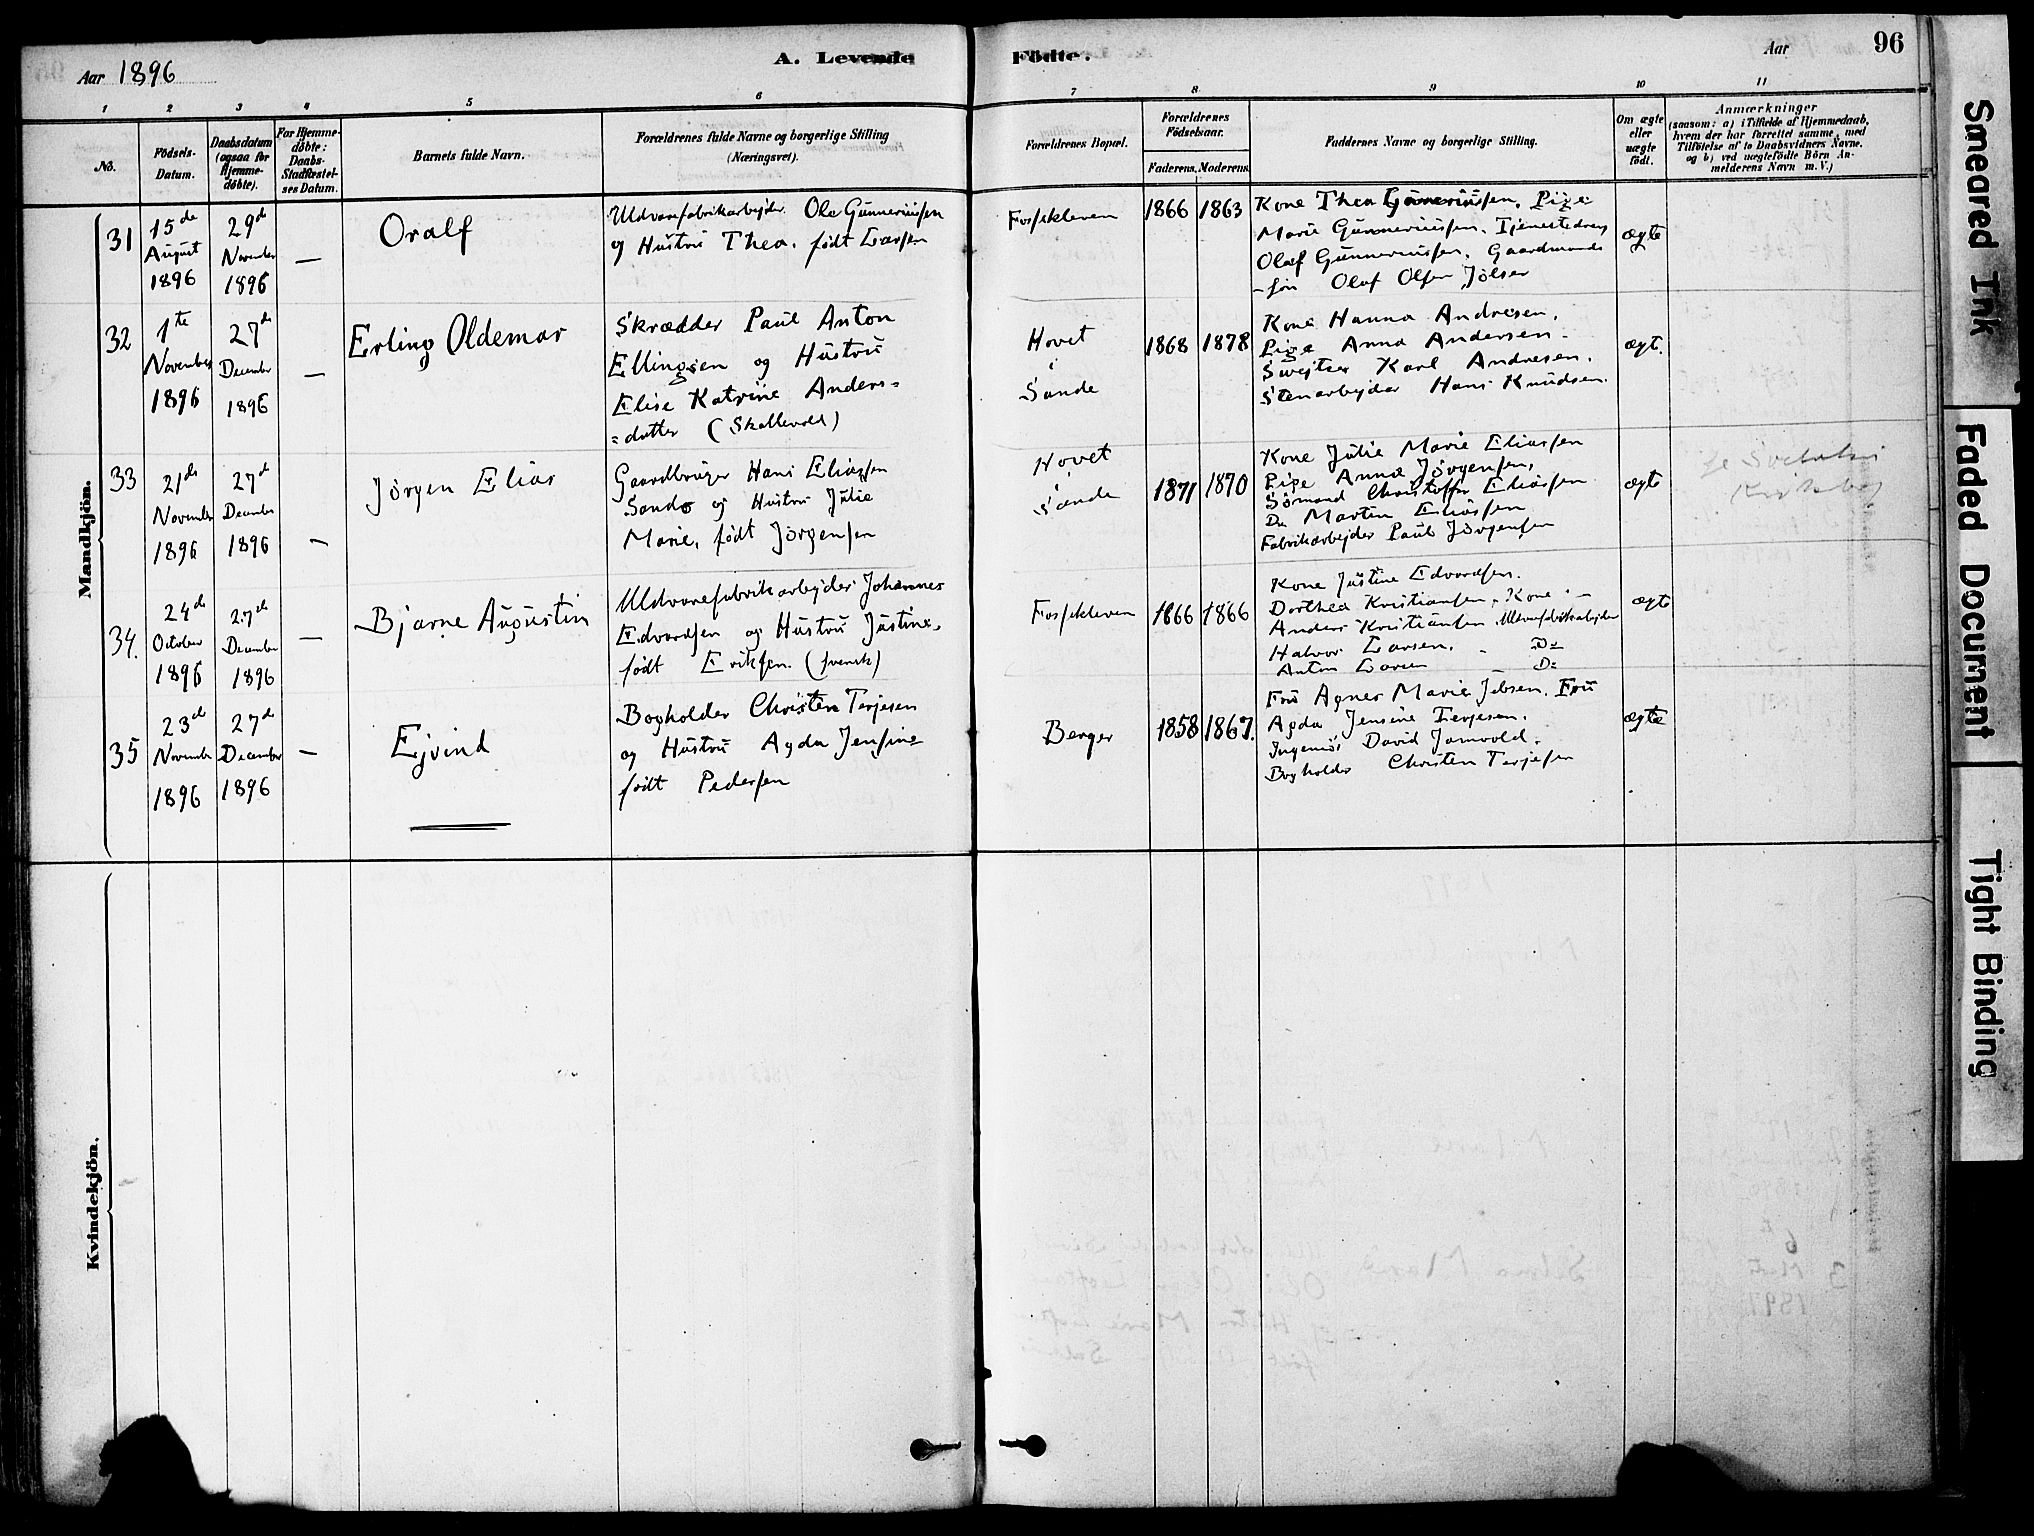 Aar 1896
A. Levende
Födte.
Aar
96
1 2 3 4 5 6 7 8 9 10 11
No.
Födsels-
Datum.
Daabsdatum
(ogsaa for
Hjemme-
döbte).
For Hjemme-
döbte:
Daabs-
Stadfæstel-
ses Datum.
Barnets fulde Navn.
Forældrenes fulde Navne og borgerlige Stilling
(Næringsvei).
Forældrenes Bopæl.
Forældrenes
Födselsaar.
Faderens. Moderens.
Faddernes Navne og borgerlige Stilling.
Om ægte
eller
uægte
födt.
Anmærkninger
(saasom: a) i Tilfælde af Hjemmedaab,
hvem der har forrettet samme, med
Tilföielse af to Daabsvidners Navne.
og b) ved uægtefödte Börn An-
melderens Navn m.V.)
Mandkjön.
31
15de
August
1896
29de
November
1896
—
Oralf
Uldvarefabrikarbejder Ole Gunneriussen
og Hustru Thea, født Larsen
Fossekleven
1866 1863
Kone Thea Gunneriussen, Pige
Marie Gunneriussen. Tjenestedreng
Olaf Gunneriussen. Gaardmands
-søn Olaf Olsen Jølson
ægte
32
1te
November
1896
27de
December
1896
—
Erling Oldemar
Skrædder Paul Anton
Ellingsen og Hustru
Elise Katrine Anders=
=datter (Skallevold)
Hovet
i
Sande
1868 1878
Kone Hanna Andresen.
Pige Anna Andersen.
Swejtser Karl Andresen.
Stenarbejder Hans Knudsen.
ægt.
33
21de
November
1896
27de
December
1896
—
Jörgen Elias
Gaardbruger Hans Eliassen
Sando og Hustru Julie
Marie, født Jörgensen
Hovet
i
Sande
1871 1870
Kone Julie Marie Eliassen
Pige Anna Jörgensen,
Sømand Christoffer Eliassen
Do Martin Eliassen
Fabrikarbejder Paul Jörgensen
ægte
34.
24de
October
1896
27de
December
1896
—
Bjarne Augustin
Uldvarefabrikarbejder Johannes
Edvardsen og Hustru Justine,
født Eriksen. (svensk)
Fossekleven
1866 1866
Kone Justine Edvardsen.
Dorthea Kristiansen, Kone. —
Anders Kristiansen, Uldvarefabrikarbejder
Halvor Larsen. - Do
Anton Larsen - Do
ægte
35
23de
November
1896
27de
December
1896
—
Ejvind
Bogholder Christen Terjesen
og Hustru Agda Jensine
født Pedersen
Berger
1858 1867.
Fru Agnes Marie Jebsen. Fru
Agda Jensine Terjesen.
Ingeniør David Jarnvold.
Bogholder Christen Terjesen
ægte
Kvindekjön.
Smeared Ink
Faded Document
Tight Binding